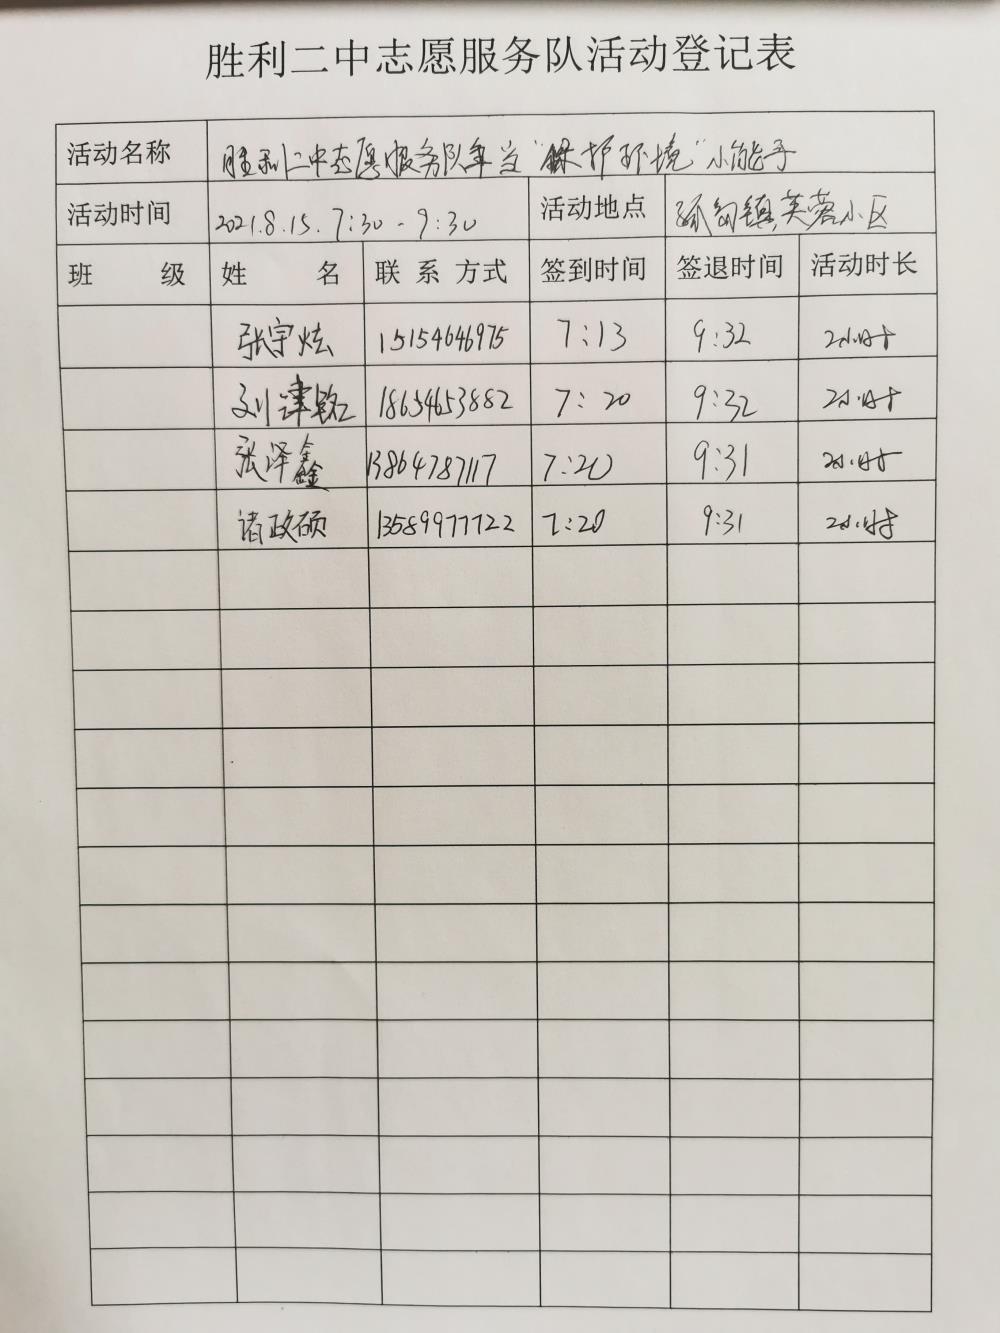 胜利二中志愿服务队活动登记表
活动名称 胜利二中志愿服务队争当“保护环境”小能手
活动时间 2021.8.15. 7:30 - 9:30 活动地点 孤岛镇芙蓉小区
班 级 姓 名 联 系 方式 签到时间 签退时间 活动时长
张宇炫 15154646975 7:13 9:32 2小时
刘津铭 18654653882 7:20 9:32 2小时
张泽鑫 13864787117 7:20 9:31 2小时
诸政硕 13589977722 7:20 9:31 2小时